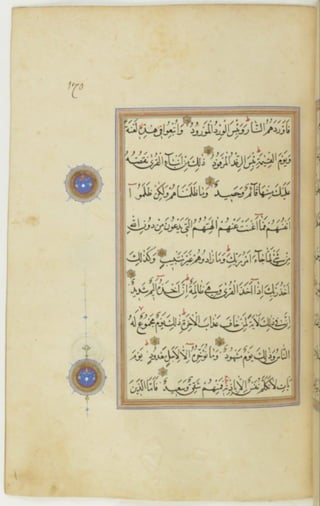 فَاَوْرَدَهُمُ النَّارَ وَبِئْسَ الْوِرْدُ الْمَوْرُودُ وَاُتْبِعُوا فِي هٰذِهِ لَعْنَةً
وَيَوْمَ الْقِيٰمَةِ بِئْسَ الرِّفْدُ الْمَرْفُودُ ذٰلِكَ مِنْ اَنْبَاءِ الْقُرٰى نَقُصُّهُ
عَلَيْكَ مِنْهَا قَائِمٌ وَحَصِيدٌ وَمَا ظَلَمْنَاهُمْ وَلٰكِنْ ظَلَمُوا ا
َنْفُسَهُمْ فَمَا اَغْنَتْ عَنْهُمْ اٰلِهَتُهُمُ الَّتِي يَدْعُونَ مِنْ دُونِ اللّٰهِ
مِنْ شَيْءٍ لَمَّا جَاءَ اَمْرُ رَبِّكَ وَمَا زَادُوهُمْ غَيْرَ تَتْبِيبٍ وَكَذٰلِكَ
اَخْذُ رَبِّكَ اِذَا اَخَذَ الْقُرٰى وَهِيَ ظَالِمَةٌ اِنَّ اَخْذَهُ اَلِيمٌ شَدِيدٌ
اِنَّ فِي ذٰلِكَ لَاٰيَةً لِمَنْ خَافَ عَذَابَ الْاٰخِرَةِ ذٰلِكَ يَوْمٌ مَجْمُوعٌ لَهُ
النَّاسُ وَذٰلِكَ يَوْمٌ مَشْهُودٌ وَمَا نُؤَخِّرُهُ اِلَّا لِاَجَلٍ مَعْدُودٍ يَوْمَ
يَاْتِ لَا تَكَلَّمُ نَفْسٌ اِلَّا بِاِذْنِهِ فَمِنْهُمْ شَقِيٌّ وَسَعِيدٌ فَاَمَّا الَّذِينَ